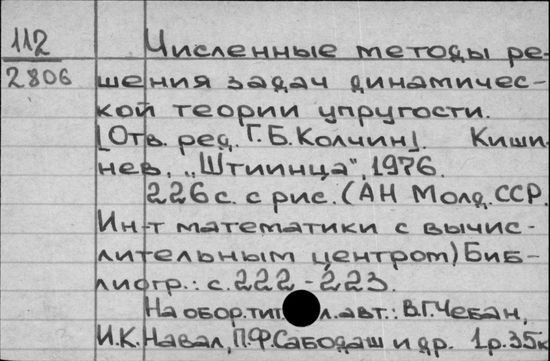 112
2806
Численные методы ре-
шения задач динамичес-
кой теории упругости.
[Отв. ред. Г.Б.Колчин]. Киши-
нев, „Штиинца", 1976.
226 с. с рис. (АН Молд. ССР.
Ин-т математики с вычис-
лительным центром) Биб-
лиогр.: с. 222-223.
На обор. тит. л. авт.: В.Г.Чебан,
И.К.Навал, П.Ф.Сабодаш и др. 1р.35к